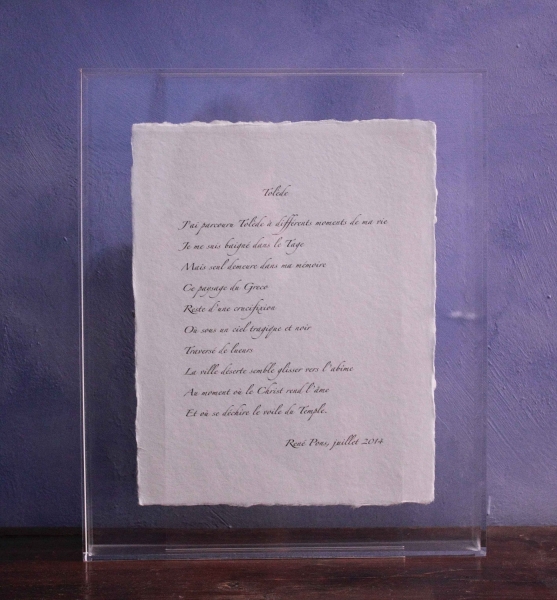 Tolède
J'ai parcouru Tolède à différents moments de ma vie
Je me suis baigné dans le Tage
Mais seul demeure dans ma mémoire
Ce paysage du Greco
Reste d'une crucifixion
Où sous un ciel tragique et noir
Traversé de lueurs
La ville déserte semble glisser vers l'abîme
Au moment où le Christ rend l'âme
Et où se déchire le voile du Temple.
René Pons, juillet 2014